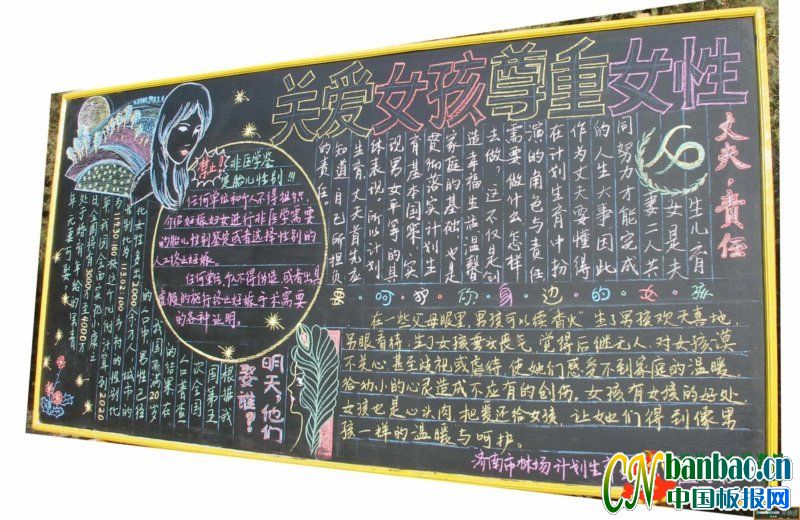 关爱女孩尊重女性
丈夫·责任
生儿育
女是夫
妻二人共
同努力才能完成
的人生大事因此
作为丈夫要懂得
在计划生育中扮
演的角色与责任
需要做什么怎样
去做？这不仅是创
造幸福生活，温馨
家庭的基础，也是
贯彻落实计划生
育基本国策，实
现男女平等的具
体表现，所以计划
生育丈夫首先应
知道自己所担负
的责任。
禁止!!非医学鉴
定胎儿性别!!!
任何单位和个人不得组织、
介绍妊娠妇女进行非医学需要
的胎儿性别鉴定或者选择性别的
人工终止妊娠。
任何单位、个人不得伪造、或者出具
虚假的施行终止妊娠手术需要
的各种证明。
呵护你身边的女孩
在一些父母眼里，男孩可以续“香火”生了男孩欢天喜地，
另眼看待，生了女孩垂头丧气，觉得后继无人。对女孩漠
不关心甚至歧视或虐待，使她们感受不到家庭的温暖，
给幼小的心灵造成不应有的创伤。女孩有女孩的好处，
女孩也是心头肉，把爱还给女孩，让她们得到像男
孩一样的温暖与呵护。
济南市林场计划生
明天，他们
娶谁？
根据我
国第五
次全国
人口普查
的结果在
我国有20岁
的人口中男性已经
比女性多出2000余万人，城市的
CNbanbao.cn
中国板报网